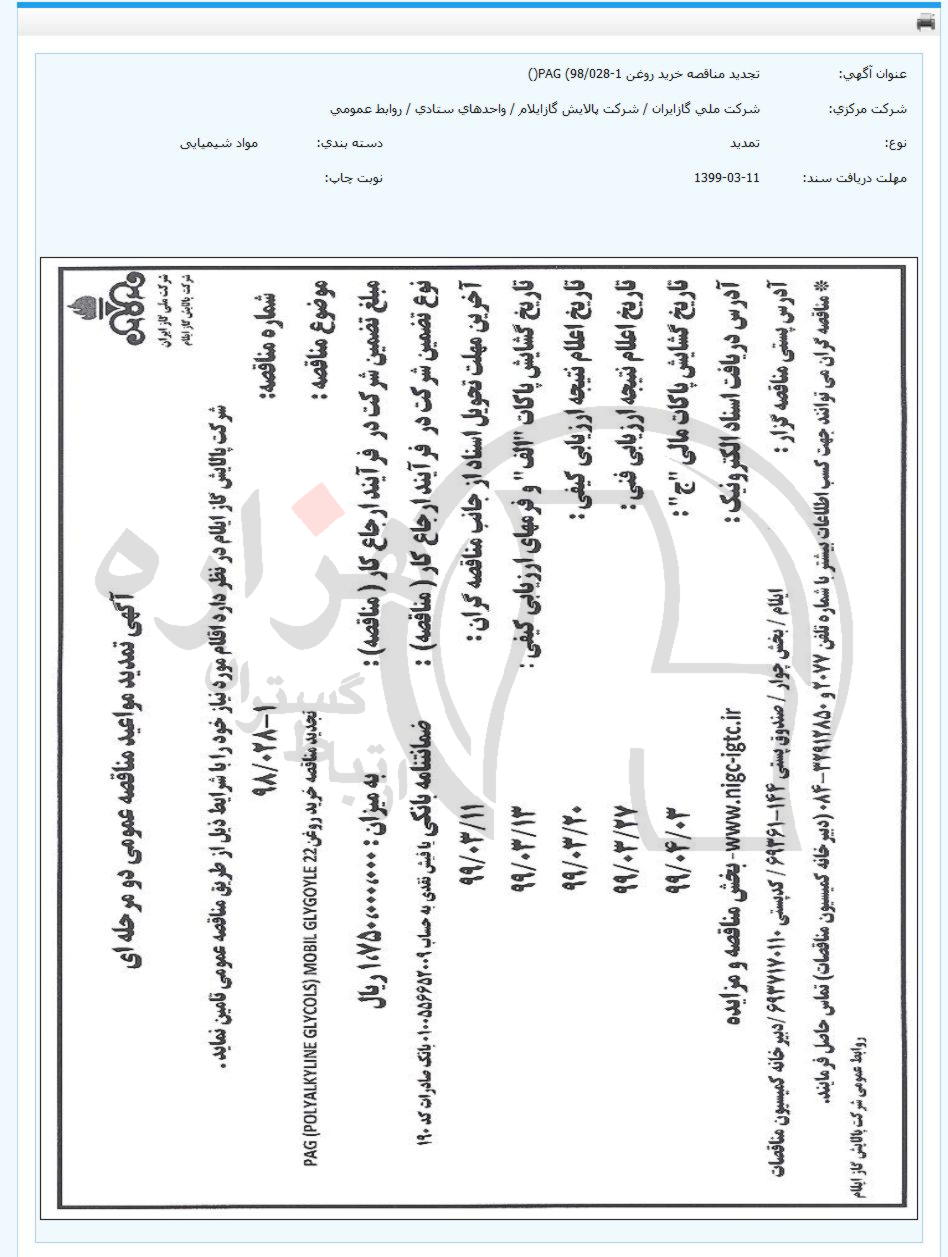 عنوان آگهي: تجدید مناقصه خرید روغن PAG (98/028-1()
شرکت مرکزي: شرکت ملي گازايران / شرکت پالايش گازايلام / واحدهاي ستادي / روابط عمومي
نوع: تمدید دسته بندي: مواد شیمیایی
مهلت دریافت سند: 1399-03-11 نوبت چاپ:
شرکت ملی گاز ایران
شرکت پالایش گاز ایلام
آگهی تمدید مواعید مناقصه عمومی دو مرحله ای
شرکت پالایش گاز ایلام در نظر دارد اقلام مورد نیاز خود را با شرایط ذیل از طریق مناقصه عمومی تامین نماید.
شماره مناقصه: ۹۸/۰۲۸-۱
موضوع مناقصه : تجدید مناقصه خرید روغن PAG (POLYALKYLINE GLYCOLS) MOBIL GLYGOYLE 22
مبلغ تضمین شرکت در فرآیند ارجاع کار ( مناقصه) : به میزان : ۱،۷۵۰،۰۰۰،۰۰۰ ریال
نوع تضمین شرکت در فرآیند ارجاع کار ( مناقصه) : ضمانتنامه بانکی یا فیش نقدی به حساب ۰۱۰۰۵۵۶۶۵۲۰۰۹ بانک صادرات کد ۱۹۰
آخرین مهلت تحویل اسناد از جانب مناقصه گران : ۹۹/۰۳/۱۱
تاریخ گشایش پاکات "الف" و فرمهای ارزیابی کیفی : ۹۹/۰۳/۱۳
تاریخ اعلام نتیجه ارزیابی کیفی : ۹۹/۰۳/۲۰
تاریخ اعلام نتیجه ارزیابی فنی : ۹۹/۰۳/۲۷
تاریخ گشایش پاکات مالی "ج" : ۹۹/۰۴/۰۳
آدرس دریافت اسناد الکترونیک : www.nigc-igtc.ir- بخش مناقصه و مزایده
آدرس پستی مناقصه گزار : ایلام / بخش چوار / صندوق پستی ۱۴۴-۶۹۳۶۱ / کدپستی ۶۹۳۷۱۷۰۱۱۰ /دبیر خانه کمیسیون مناقصات
* مناقصه گران می توانند جهت کسب اطلاعات بیشتر با شماره تلفن ۲۰۷۷ و ۳۲۹۱۲۸۵۰-۰۸۴ (دبیر خانه کمیسیون مناقصات) تماس حاصل فرمایند.
روابط عمومی شرکت پالایش گاز ایلام
هزاره
گستران
ارتباط